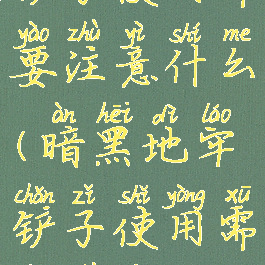 yào zhù yì shí me
要注意什么
àn hēi dì láo
(暗黑地牢
chǎn zǐ shǐ yòng xū
铲子使用需